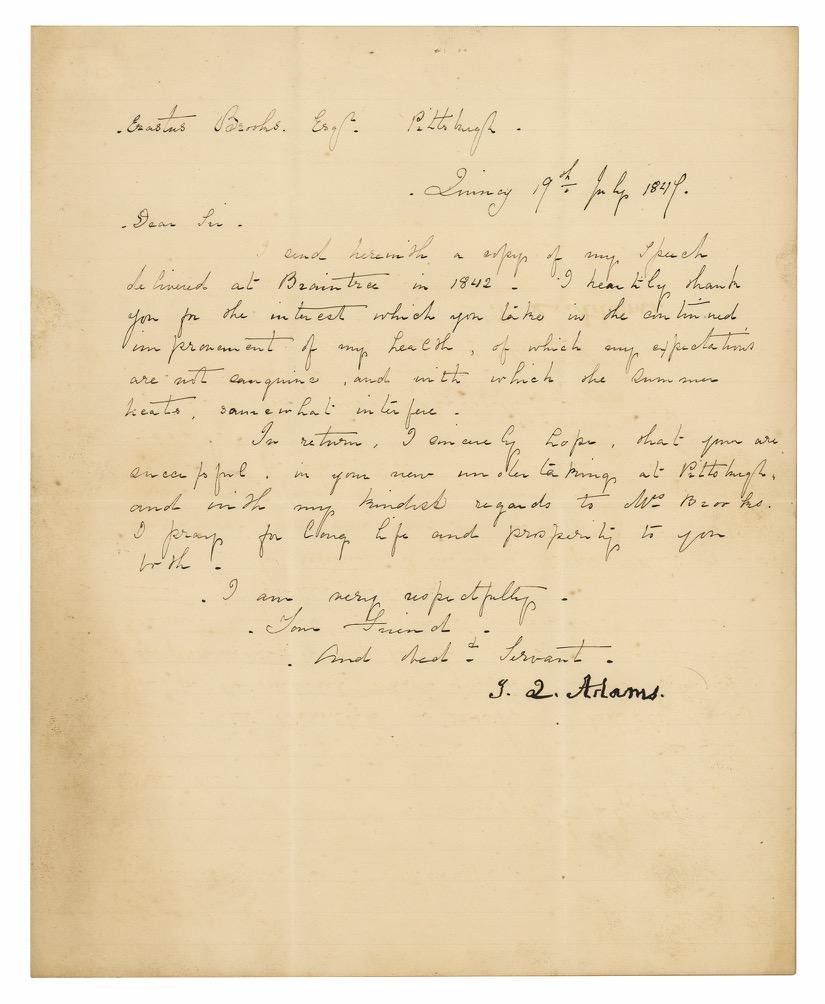 Erastus Brooks. Esqr. Pittsburgh.
Quincy 19th July 1847.
Dear Sir.
I send herewith a copy of my Speech
delivered at Braintree in 1842 - I heartily thank
you for the interest which you take in the continued
improvement of my health, of which my expectations
are not sanguine, and with which the summer
heats, somewhat interfere.
In return, I sincerely hope, that you are
successful, in your new undertaking at Pittsburgh,
and with my kindest regards to Mrs Brooks.
I pray for long life and prosperity to you
both.
I am very respectfully -
Your Friend -
And obedt Servant.
J. Q. Adams.